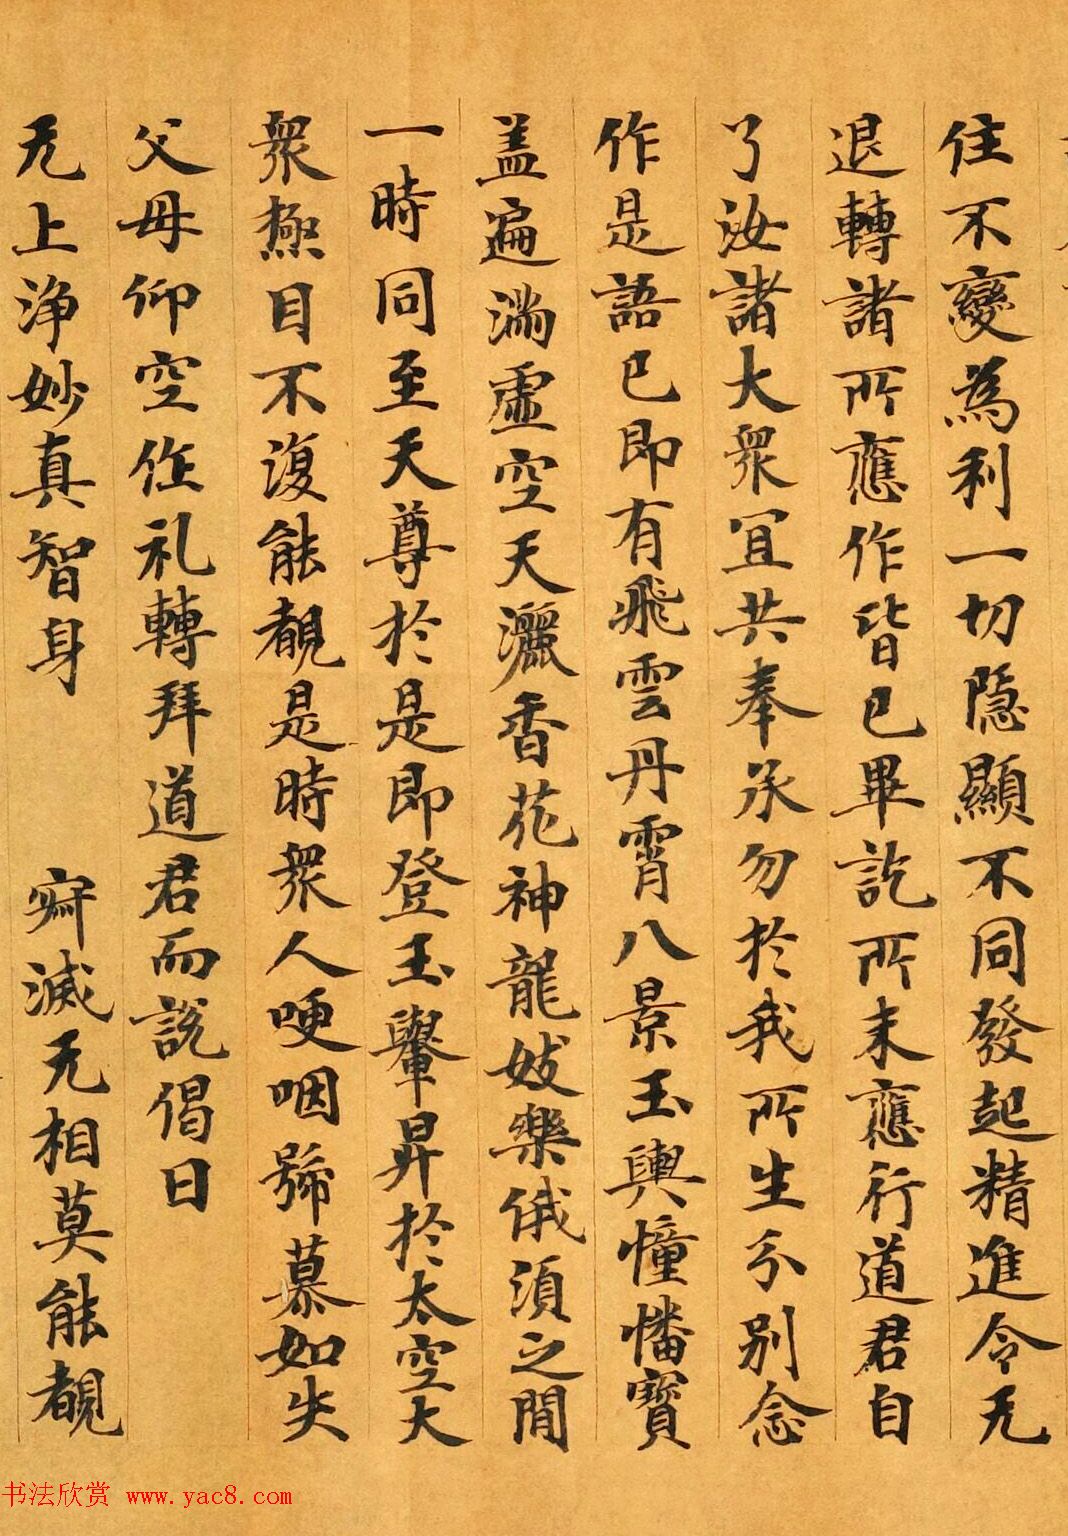 住不變為利一切隐顯不同發起精進令无
退轉諸所應作皆已畢訖所未應行道君自
了汝諸大衆宜共奉承勿於我所生分别念
作是語已即有飛雲丹霄八景玉輿幢幡寶
盖遍滿虛空天灑香花神龍妓樂俄須之間
一時同至天尊於是即登玉轝昇於太空大
衆極目不復能覩是時衆人哽咽號慕如失
父母仰空作礼轉拜道君而說偈曰
无上淨妙真智身 寂滅无相莫能覩
书法欣赏 www.yac8.com